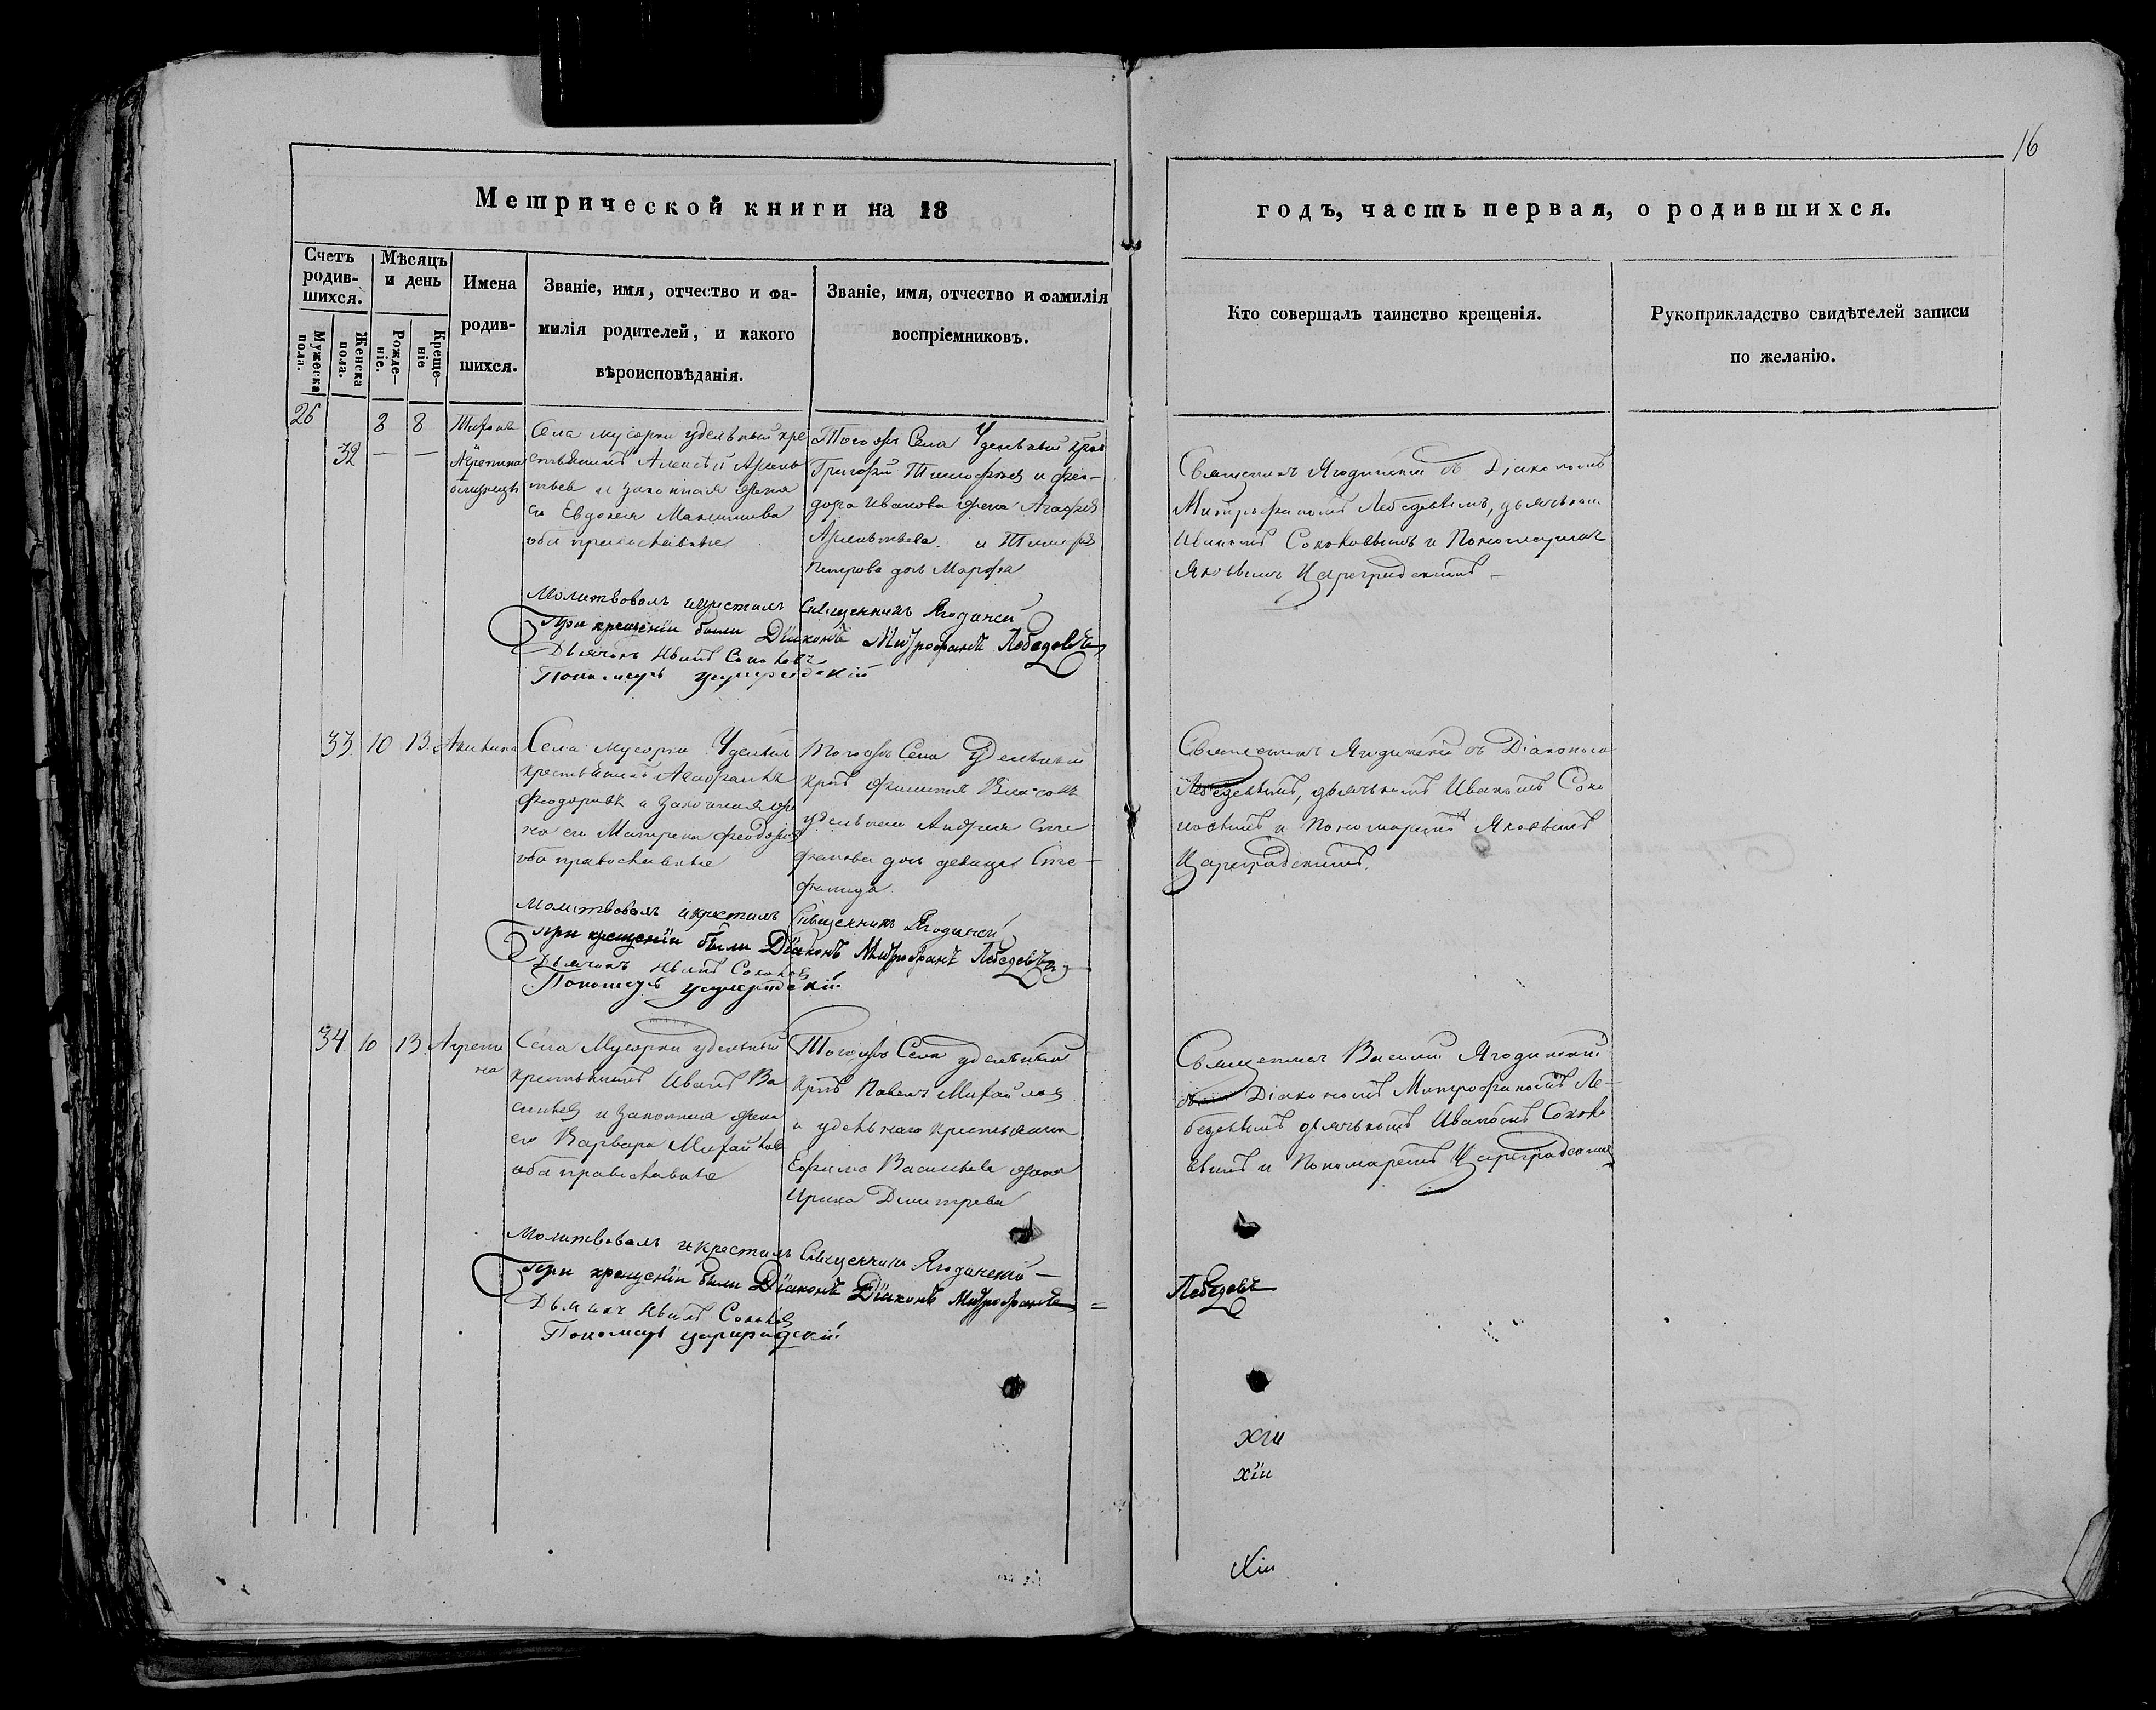 16
Метрической книги на 18
годъ, часть первая, о родившихся.
Счетъ родив-шихся.
Мужеска пола.
Женска пола.
Мѣсяцъ и день
Рожде-ніе.
Креще-ніе
Имена
родив-
шихся.
Званіе, имя, отчество и фа-
милія родителей, и какого
вѣроисповѣданія.
Званіе, имя, отчество и фамилія
воспріемниковъ.
Кто совершалъ таинство крещенія.
Рукоприкладство свидѣтелей записи
по желанію.
26
8 8
32
— —
близнецы
Села Мусорки удельный кре
стьянинъ Алексѣй
и законная жена
его Евдокея Максимова
оба православные
Тогожъ Села Удельный
Григорій Тимофѣев и Фео-
дора Иванова жена Агафия
и
Петрова дочь Марфа
Священникъ Ягодинскій съ Діакономъ
Митрофаномъ Лебедевымъ, дьячькомъ
Иваномъ Соколовымъ и Пономаремъ
Яковымъ Цареградскимъ —
Молитвовалъ и крестилъ Священникъ Ягодинскій
При крещеніи были Діаконъ Митрофанъ Лебедевъ
Дьячокъ Иванъ Соколовъ
Пономарь Цареградскій
33 10 13 Акилина
Села Мусорки Удельный
крестьянинъ
Феодоровъ и законная же
на его Матрена Феодорова
оба православные
Тогожъ Села Удельный
Власовъ
удельнаго Андрея Сте
фанова дочь девица Сте-
фанида
Священникъ Ягодинскій съ Діакономъ
Лебедевымъ, дьячькомъ Иваномъ Соко
ловымъ и Пономаремъ Яковымъ
Цареградскимъ.
Молитвовалъ и крестилъ Священникъ Ягодинскій
При крещеніи были Діаконъ Митрофанъ Лебедевъ
Дьячокъ Иванъ Соколовъ
Пономарь Цареградскій
34 10 13 Агрепи
на
Села Мусорки удельный
крестьянинъ Иванъ Ва
сильев и законная жена
его Варвара Михайлова
оба православные
Тогожъ Села удельный
Павелъ Михайлов
и удельнаго крестьянина
Ефима Васильева жена
Ирина Димитрева
Священникъ Василий Ягодинский
съ Діакономъ Митрофаномъ Ле-
бедевымъ дьячькомъ Иваномъ Соколо
вымъ и Пономаремъ Цареградскимъ
Молитвовалъ и крестилъ Священникъ Ягодинскій —
При крещеніи были Діаконъ Діаконъ Митрофанъ =
Лебедевъ
Дьячокъ Иванъ Соколовъ
Пономарь Цареградскій